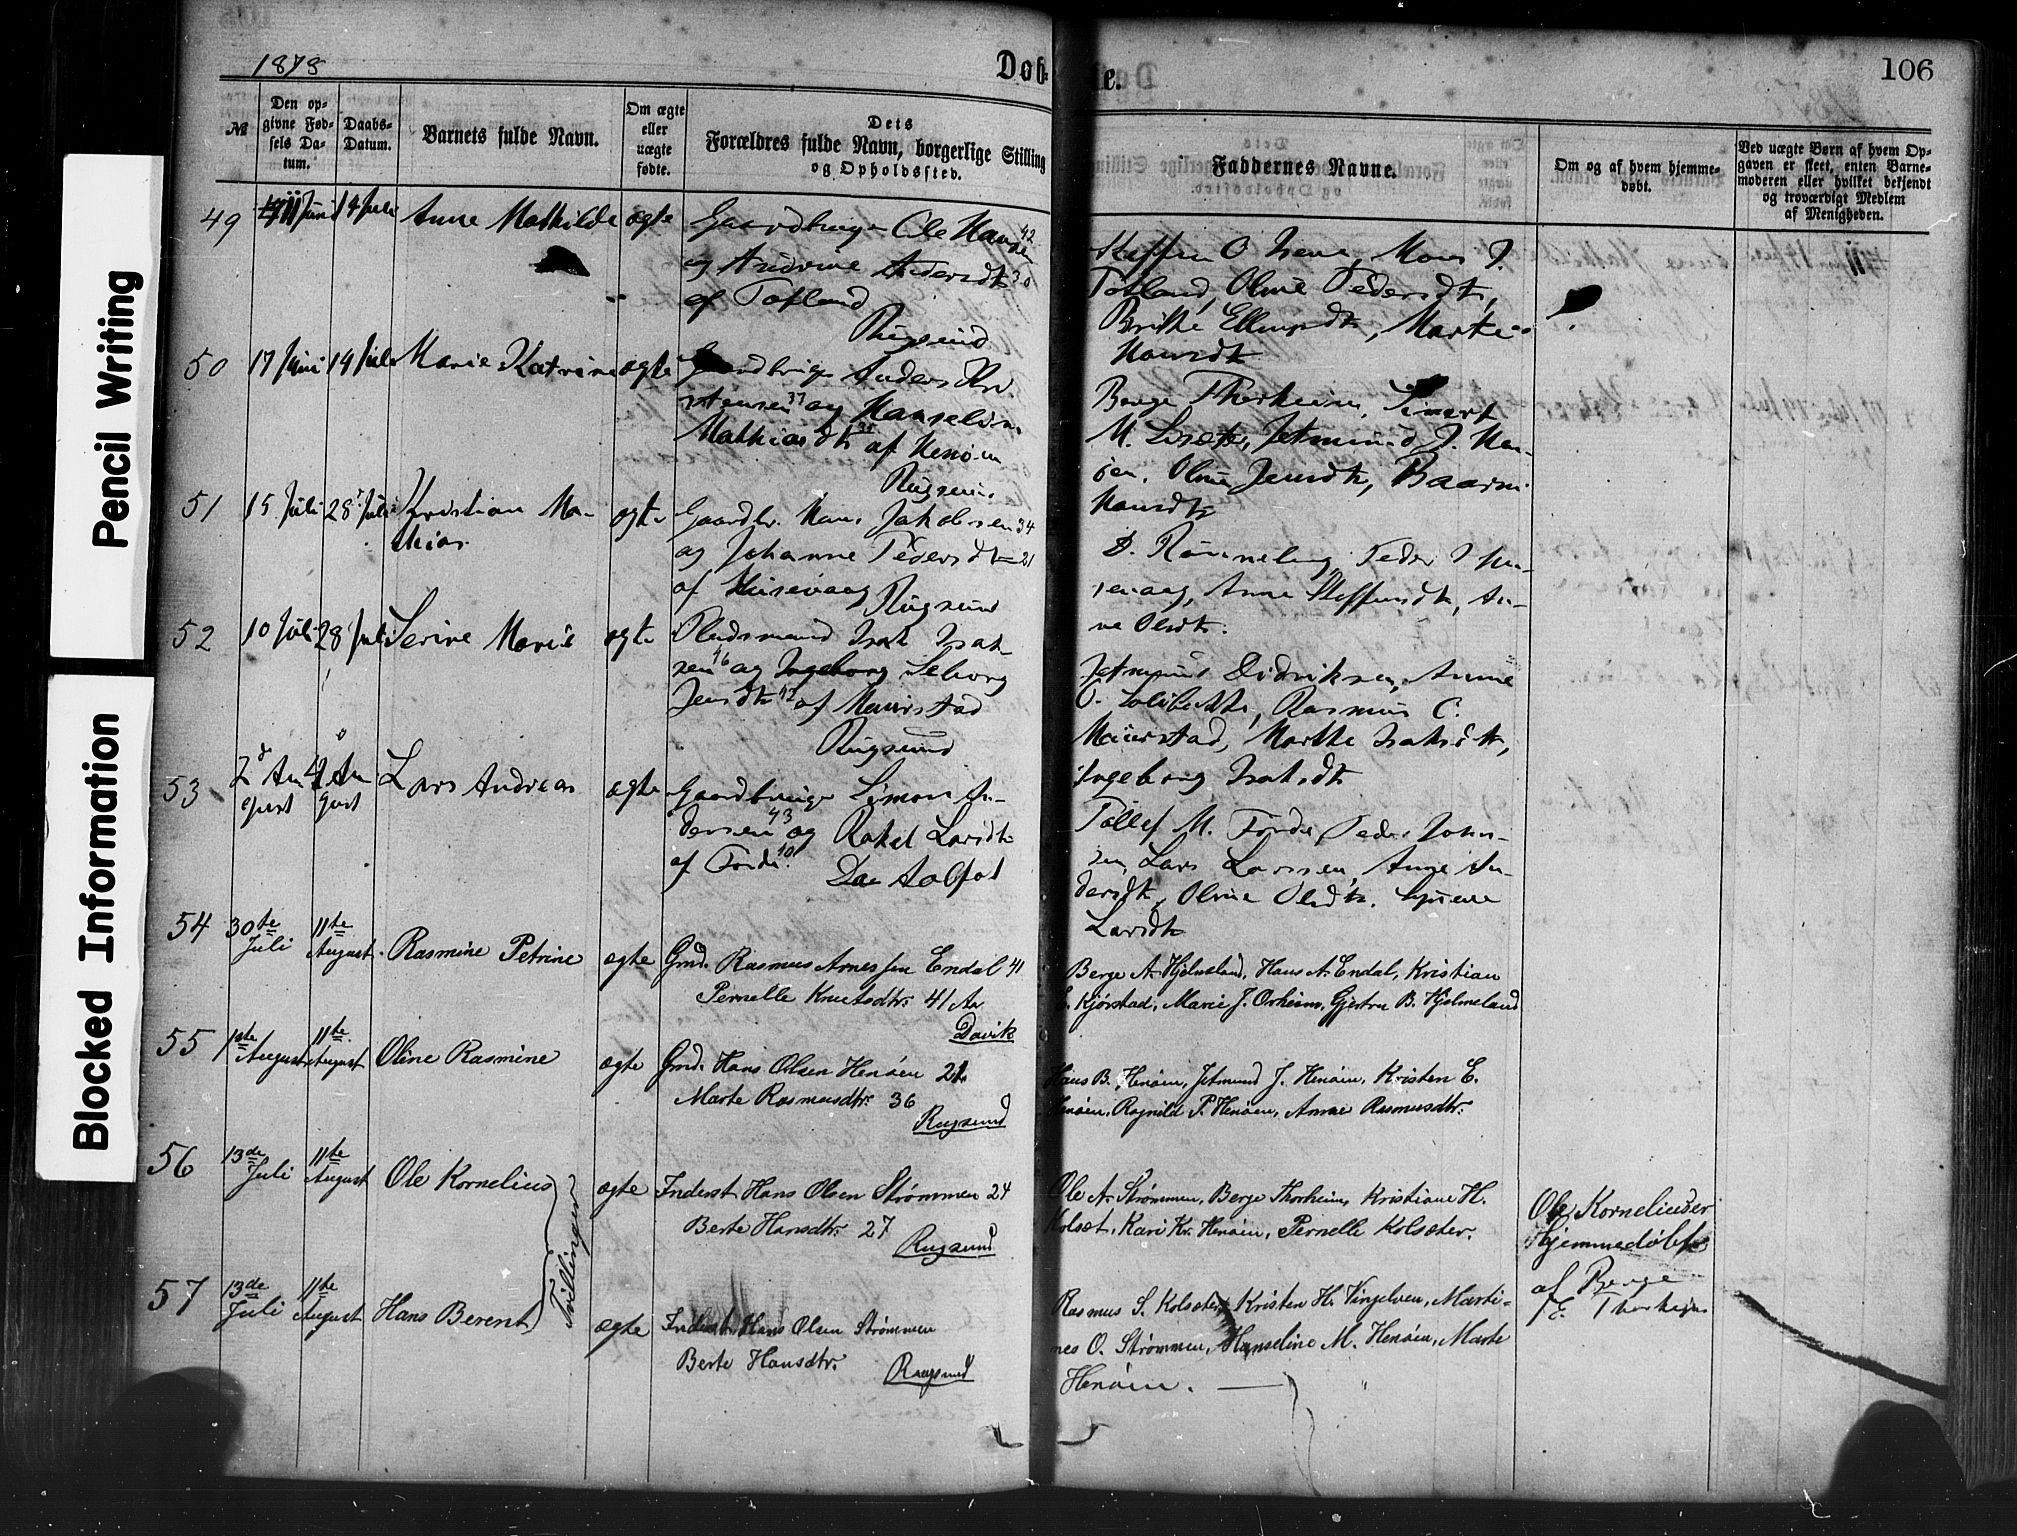 1878
Døb-
te.
106
№
Den op-
givne Fød-
sels Da-
tum.
Daabs-
Datum.
Barnets fulde Navn.
Om ægte
eller
uægte
fødte.
Dets
Forældres fulde Navn, borgerlige Stilling
og Opholdssted.
Faddernes Navne.
Om og af hvem hjemme-
døbt.
Ved uægte Børn af hvem Op-
gaven er skeet, enten Barne-
moderen eller hvilket bekjendt
og troværdigt Medlem
af Menigheden.
Pencil Writing
Blocked Information
49 11 Juni 14 Juli Anne Mathilde ægte Gaardbruger Ole Hansen 42
og Andrine Andersdtr 30
af Totland
Rugsund
Totland, Oline Pedersdtr,
Hansdtr
50 17 Juni 14 Juli Marie Katrine ægte Gaardbruger Anders Kri
stensen 37 og Hanseline
Mathiasdtr af Henøen
Rugsund
Berge Thorheim,
Oline Jensdtr,
Hansdtr
51 15 Juli 28 Juli Kristian Ma-
thias
ægte Gaardbr. Hans Jakobsen 34
og Johanne Pedersdtr 21
af Husevaag Rugsund
Rønneling, Peder
sevaag, Anne Steffensdtr, An-
ne Olsdtr.
52 10 Juli 28 Juli Serine Marie ægte Pladsmand Isak Isak-
sen 46 og Ingeborg Seborg
Jensdtr 42 af Maurstad
Rugsund
Jetmund Didriksen, Anne
Rasmus C.
Maurstad, Marthe Isaksdtr,
Ingeborg Isaksdtr
53 2 Au
gust
4 Au
gust
Lars Andreas ægte Gaardbruger Simon An-
dersen 43 og Rakel Larsdtr
af Førde 40
Aalfot
Tollef M. Førde, Peder John-
sen, Lars Larssen, Anne An-
dersdtr, Oline Olsdtr.
Larsdtr
54 30te
Juli
11te
August
Rasmine Petrine ægte Gmd. Rasmus Arnessen Endal 41
Pernelle Knutsdtr. 41 Aar
Davik
Berge A. Hjelmeland, Hans A. Endal, Kristian
E. Kjørstad, Marie J. Orheim, Gjertru B. Hjelmeland
55 1ste
August
11te
August
Oline Rasmine ægte Gmd. Hans Olsen Henøen 21
Marte Rasmusdtr. 36
Rugsund
Hans B. Henøen, Jetmund J. Henøen, Kristen E.
Henøen, Ragnild P. Henøen, Anne Rasmusdtr.
56 13de
Juli
11te
August
Ole Kornelius ægte Inderst Hans Olsen Strømmen 24
Berte Hansdtr. 27
Rugsund
Ole A. Strømmen, Berge Thorheim, Kristiane H.
Kolset, Kari Kr. Henøen, Pernelle Kolseter.
Ole Kornelius er
hjemmedøbt
af Berge
E. Thorheim
Tvillinger
57 13de
Juli
11te
August
Hans Berent ægte Inderst Hans Olsen Strømmen
Berte Hansdtr.
Rugsund
Rasmus S. Kolseter, Kristen H. Vingelven, Marti-
nes O. Strømmen, Hanseline M. Henøen, Marte
Henøen.